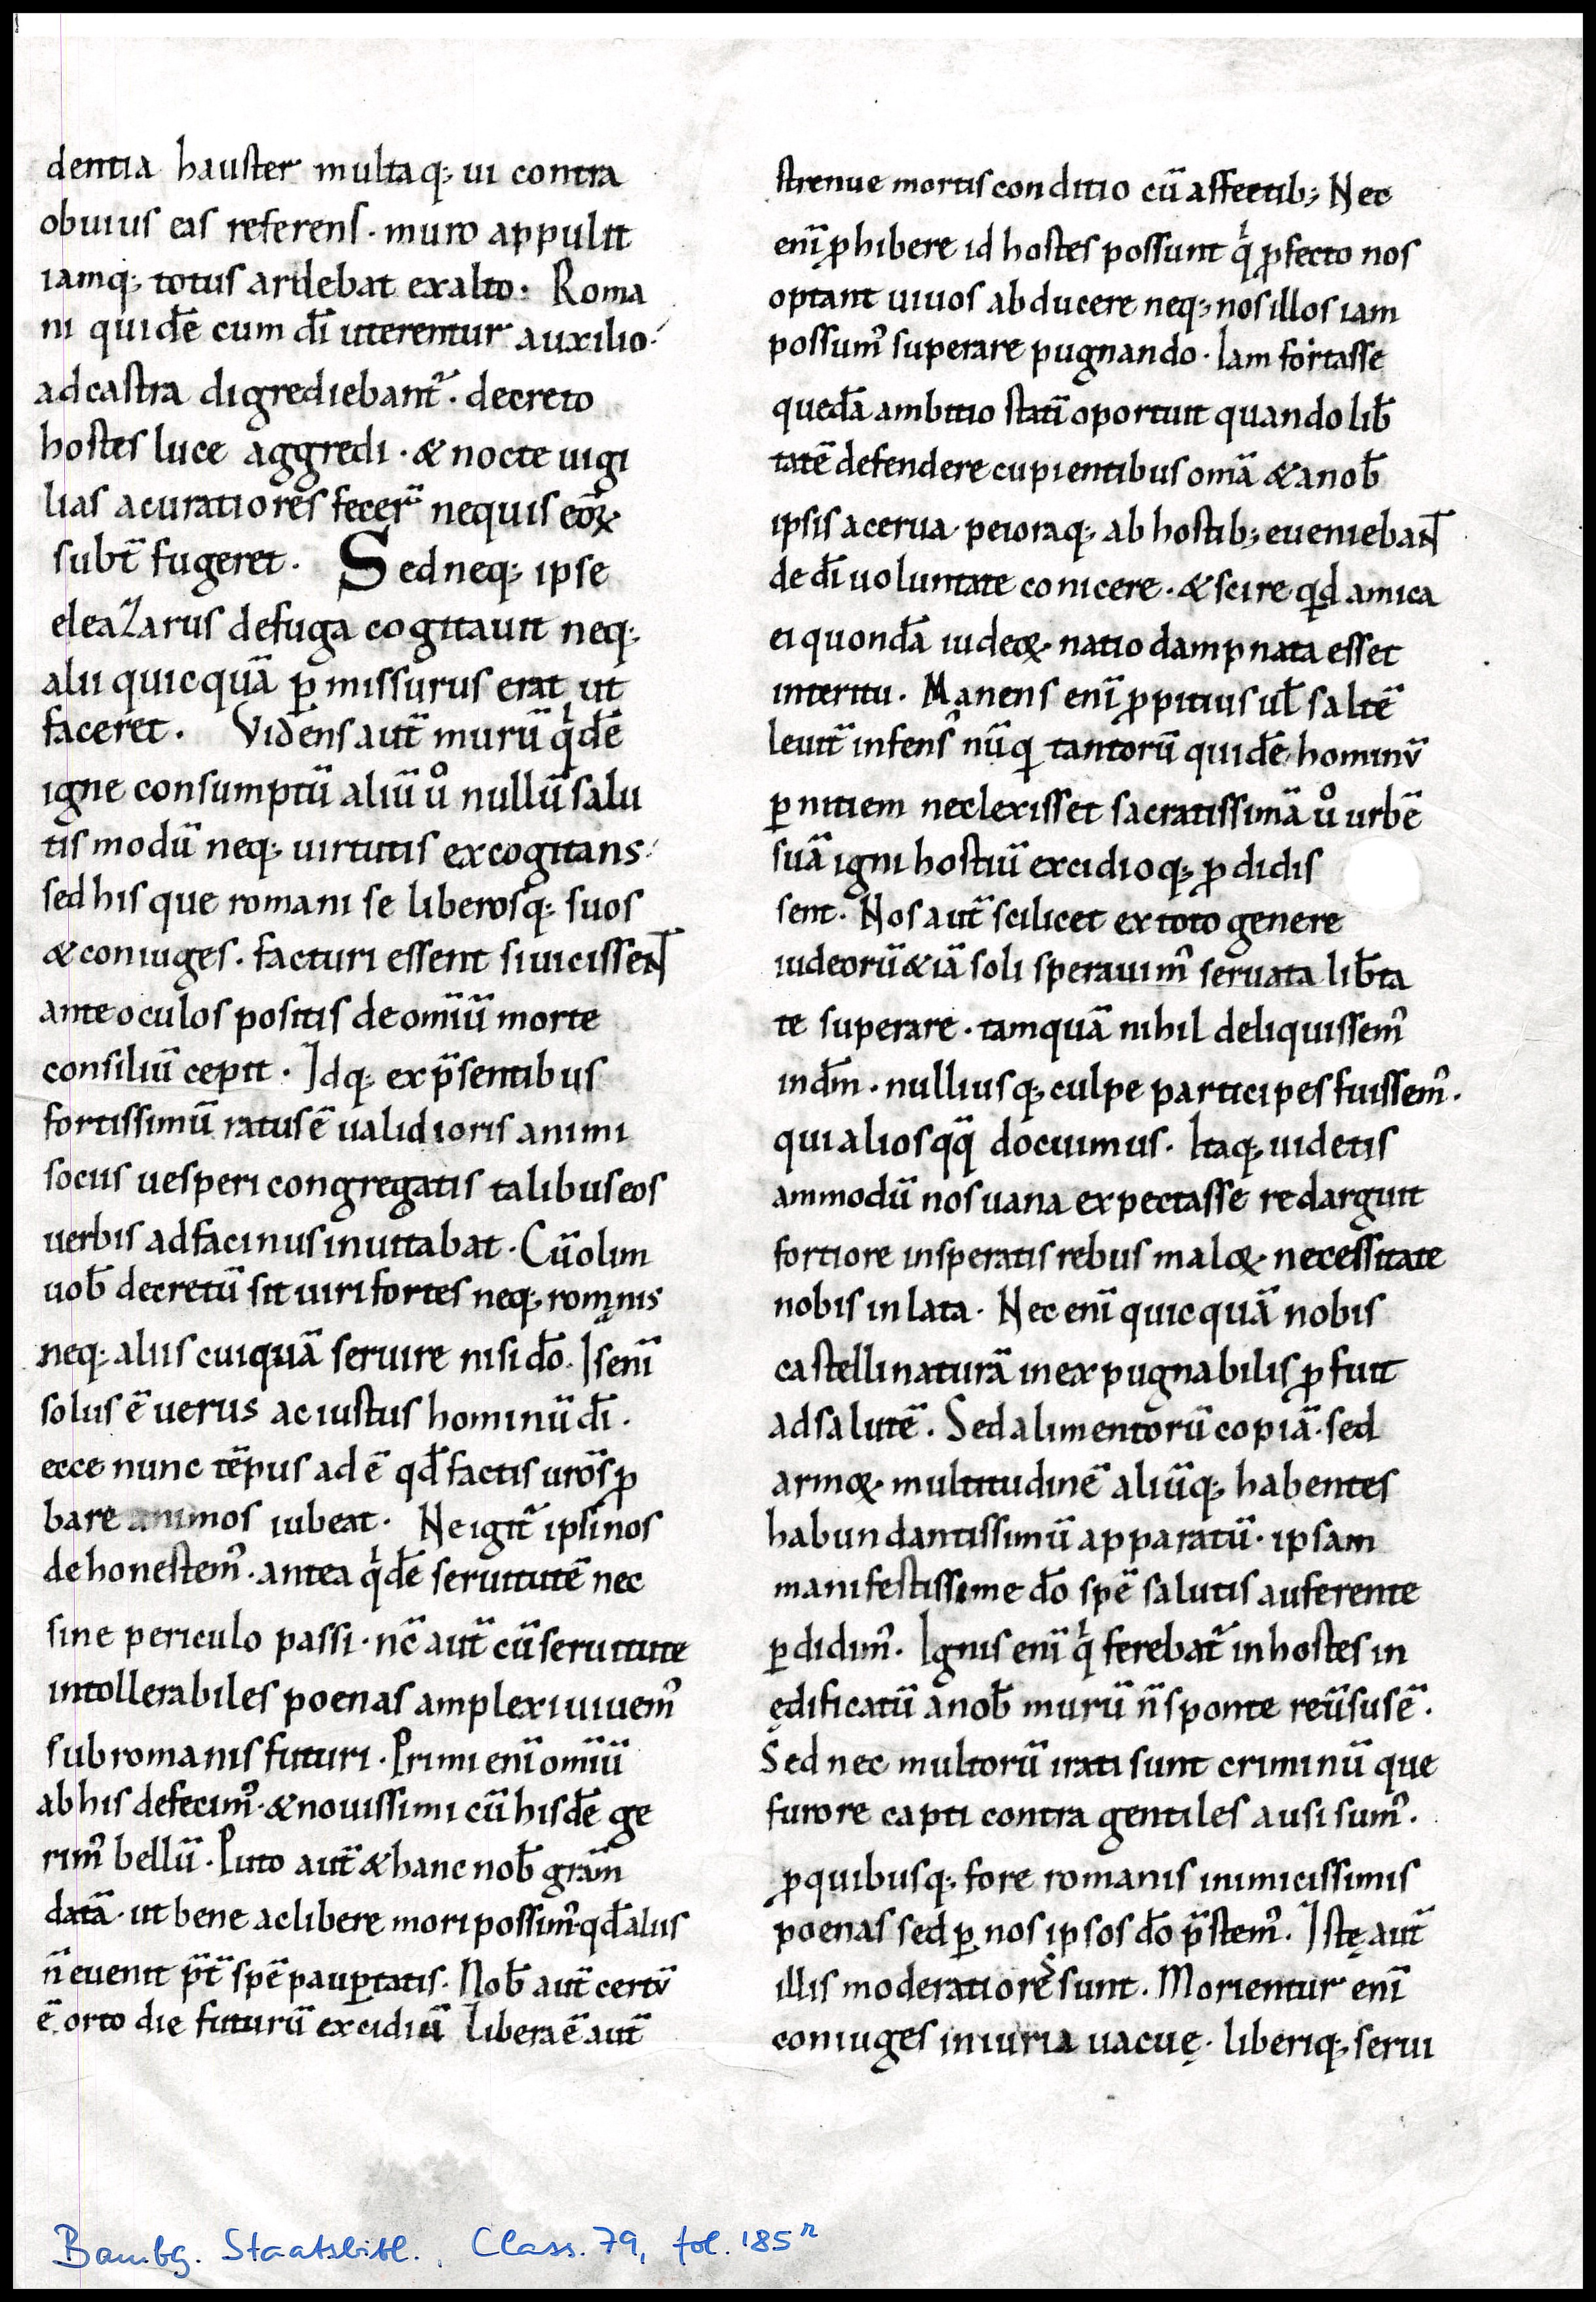 dentia hauster multaq; ui contra
obuius eas referens · muro appulit
iamq; totus ardebat exalto · Roma
ni quidē cum dī uterentur auxilio ·
adcastra digrediebant᷑ · decreto
hostes luce aggredi · & nocte uigi
lias acuratiores fecer̄ nequis eoꝝ
subt̄ fugeret · Sedneq; ipse
eleazarus defuga cogitauit neq;
alii quicquā ꝑmissurus erat ut
faceret · Videns aut̄ murū qͥdē
igne consumptū aliū uͦ nullū salu
tis modū neq; uirtutis excogitans ·
sed his que romani se liberosq; suos
& coniuges · facturi essent si uicisseN̄
ante oculos positis de omīū morte
consiliū cepit · Idq; ex p̄sentibus
fortissimū ratus ē ualidioris animi
socus uesperi congregatis talibus eos
uerbis adfacinus inuitabat · Cū olim
uob̄ decretū sit uiri fortes neq; romanis
neq; aliis cuiquā seruire nisi dō · Is enī
solus ē uerus ac iustus hominū dī ·
ecce nunc tēpus ad ē qd̄ factis urōs ꝓ
bare animos iubeat · Ne igit᷑ ipsi nos
dehonestem᷒ · antea qͥdē seruitutē nec
sine periculo passi · nc̄ aut̄ cū seruitute
intollerabiles poenas amplexi uiuem᷒
sub romanis futuri · Primi enī omīū
ab his defecim᷒ · & nouissimi cū hisdē ge
rim᷒ bellū · Puto aut̄ & hanc nob̄ grām
datā · ut bene ac libere mori possim᷒ · qd̄ aliis
n̄ euenit p̄t̄ spē pauꝑtatis · Nob̄ aut̄ certū
ē orto die futurū excidiū Libera ē aut̄
strenue mortis conditio cū affectib; Nec
enī ꝓhibere id hostes possunt qͥ ꝓfecto nos
optant uiuos abducere neq; nos illos iam
possum᷒ superare pugnando · Iam fortasse
quedā ambitio statī oportuit quando lib̄
tatē defendere cupientibus omā & a nob̄
ipsis acerua peioraq; ab hostib; eueniebaN̄
de dī uoluntate conicere · & scire qd̄ amica
ei quondā iudeoꝝ natio dampnata esset
interitu · Manens enī ꝓpitius ul̄ saltē
leuit̄ infens᷒ nūqꝫ tantorū quidē hominū
ꝑnitiem neclexisset sacratissimā uͦ urbē
suā igni hostiū excidioq; ꝓdidis
sent · Nos aut̄ scilicet ex toto genere
iudeorū & iā soli sperauim᷒ seruata lib̄ta
te superare · tamquā nihil deliquissem᷒
indm̄ · nulliusq; culpe participes fuissem᷒ ·
qui alios qq̄ docuimus · Itaq; uidetis
ammodū nos uana expectasse redarguit
fortiore insperatis rebus maloꝝ necessitate
nobis inlata · Nec enī quicquā nobis
castelli naturā inexpugnabilis ꝓfuit
ad salutē · Sed alimentorū copiā · sed
armoꝝ multitudinē aliūq; habentes
habundantissimū apparatū · ipsam
manifestissime dō spē salutis auferente
ꝑdidim᷒ · Ignis enī qͥ ferebat᷑ in hostes in
ędificatū a nob̄ murū n̄ sponte reūsus ē ·
Sed nec multorū irati sunt criminū que
furore capti contra gentiles ausi sum᷒ ·
ꝓquibusq; fore romanis inimicissimis
poenas sed ꝑ nos ipsos dō p̄stem᷒ · Istę aut̄
illis moderatiores sunt · Morientur enī
coniuges iniuria uacuę · liberiq; serui
Bambg. Staatsbibl., Class. 79, fol. 185ʳ